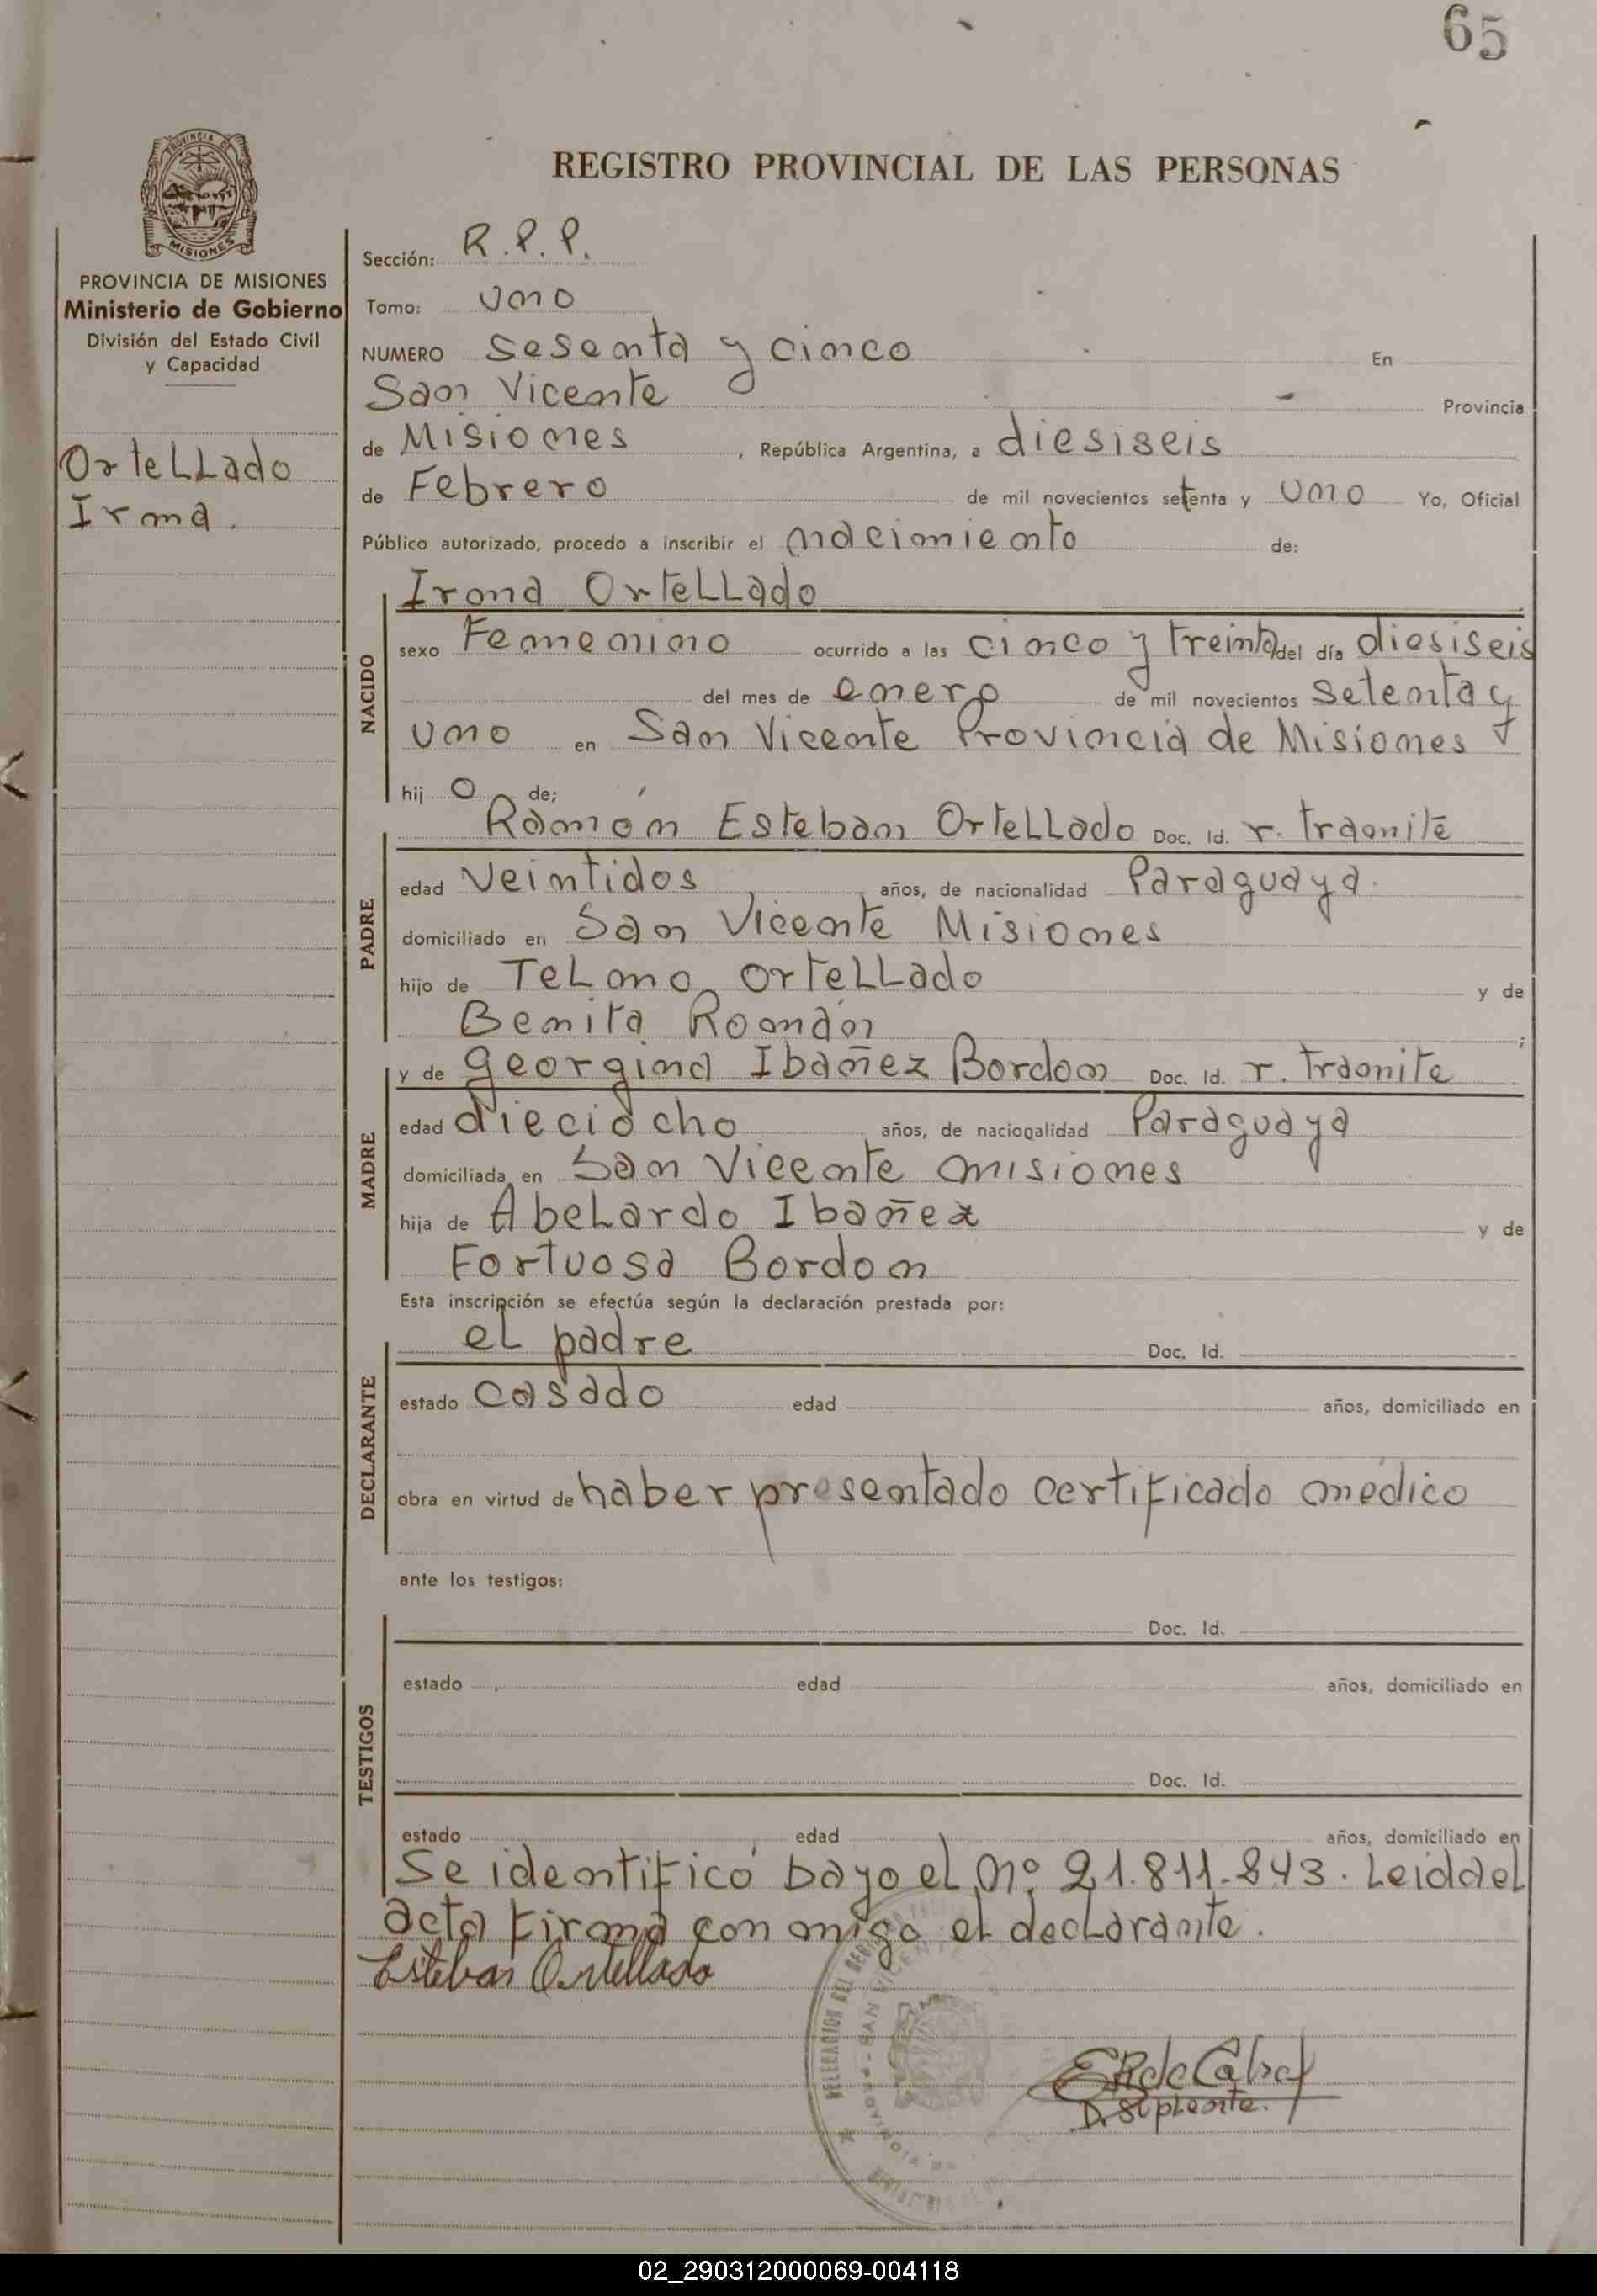 65
REGISTRO PROVINCIAL DE LAS PERSONAS
PROVINCIA DE
MISIONES
PROVINCIA DE MISIONES
Ministerio de Gobierno
División del Estado Civil
y Capacidad
Ortellado
Irma.
Sección: R.P.P.
Tomo: uno
NUMERO sesenta y cinco En
San Vicente Provincia
de Misiones, República Argentina, a diesiseis
de Febrero de mil novecientos setenta y uno Yo, Oficial
Público autorizado, procedo a inscribir el nacimiento de:
NACIDO
Irma Ortellado
sexo Femenino ocurrido a las cinco y treinta del día diesiseis
del mes de enero de mil novecientos setenta y
uno en San Vicente Provincia de Misiones
hij o de;
PADRE
Ramón Esteban Ortellado Doc. Id. r. tramite
edad veintidos años, de nacionalidad Paraguaya.
domiciliado en San Vicente Misiones
hijo de Telmo Ortellado y de
Benita Román;
MADRE
y de georgina Ibañez Bordon Doc. Id. r. tramite
edad dieciocho años, de nacionalidad Paraguaya
domiciliada en San Vicente misiones
hija de Abelardo Ibañez y de
Fortuosa Bordon
Esta inscripción se efectúa según la declaración prestada por:
DECLARANTE
el padre Doc. Id.
estado casado edad años, domiciliado en
obra en virtud de haber presentado certificado medico
ante los testigos:
TESTIGOS
Doc. Id.
estado edad años, domiciliado en
Doc. Id.
estado edad años, domiciliado en
Se identificó bayo el nº 21.811.843. Leida el
acta firma con migo el declarante.
Esteban Ortellado
DELEGACION DEL
SAN VICENTE
D. Suplente.
02_290312000069-004118